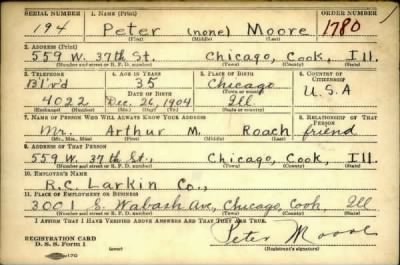 SERIAL NUMBER 1. NAME (Print) ORDER NUMBER
194 Peter (none) Moore 1780
(First) (Middle) (Last)
2. ADDRESS (Print)
559 W. 37th St. Chicago, Cook, Ill.
(Number and street or R. F. D. number) (Town) (County) (State)
3. TELEPHONE 4. AGE IN YEARS 5. PLACE OF BIRTH 6. COUNTRY OF CITIZENSHIP
Bl'v'd 35 Chicago
DATE OF BIRTH (Town or county) U.S.A
4022 Dec. 26, 1904 Ill
(Exchange) (Number) (Mo.) (Day) (Yr.) (State or country)
7. NAME OF PERSON WHO WILL ALWAYS KNOW YOUR ADDRESS 8. RELATIONSHIP OF THAT PERSON
Mr. Arthur M. Roach friend
(Mr., Mrs., Miss) (First) (Middle) (Last)
9. ADDRESS OF THAT PERSON
559 W. 37th St., Chicago, Cook, Ill.
(Number and street or R. F. D. number) (Town) (County) (State)
10. EMPLOYER'S NAME
R.C. Larkin Co.,
11. PLACE OF EMPLOYMENT OR BUSINESS
3001 S. Wabash Ave, Chicago, Cook Ill
(Number and street or R. F. D. number) (Town) (County) (State)
I AFFIRM THAT I HAVE VERIFIED ABOVE ANSWERS AND THAT THEY ARE TRUE.
REGISTRATION CARD
D. S. S. Form 1
Peter Moore
(Registrant's signature)